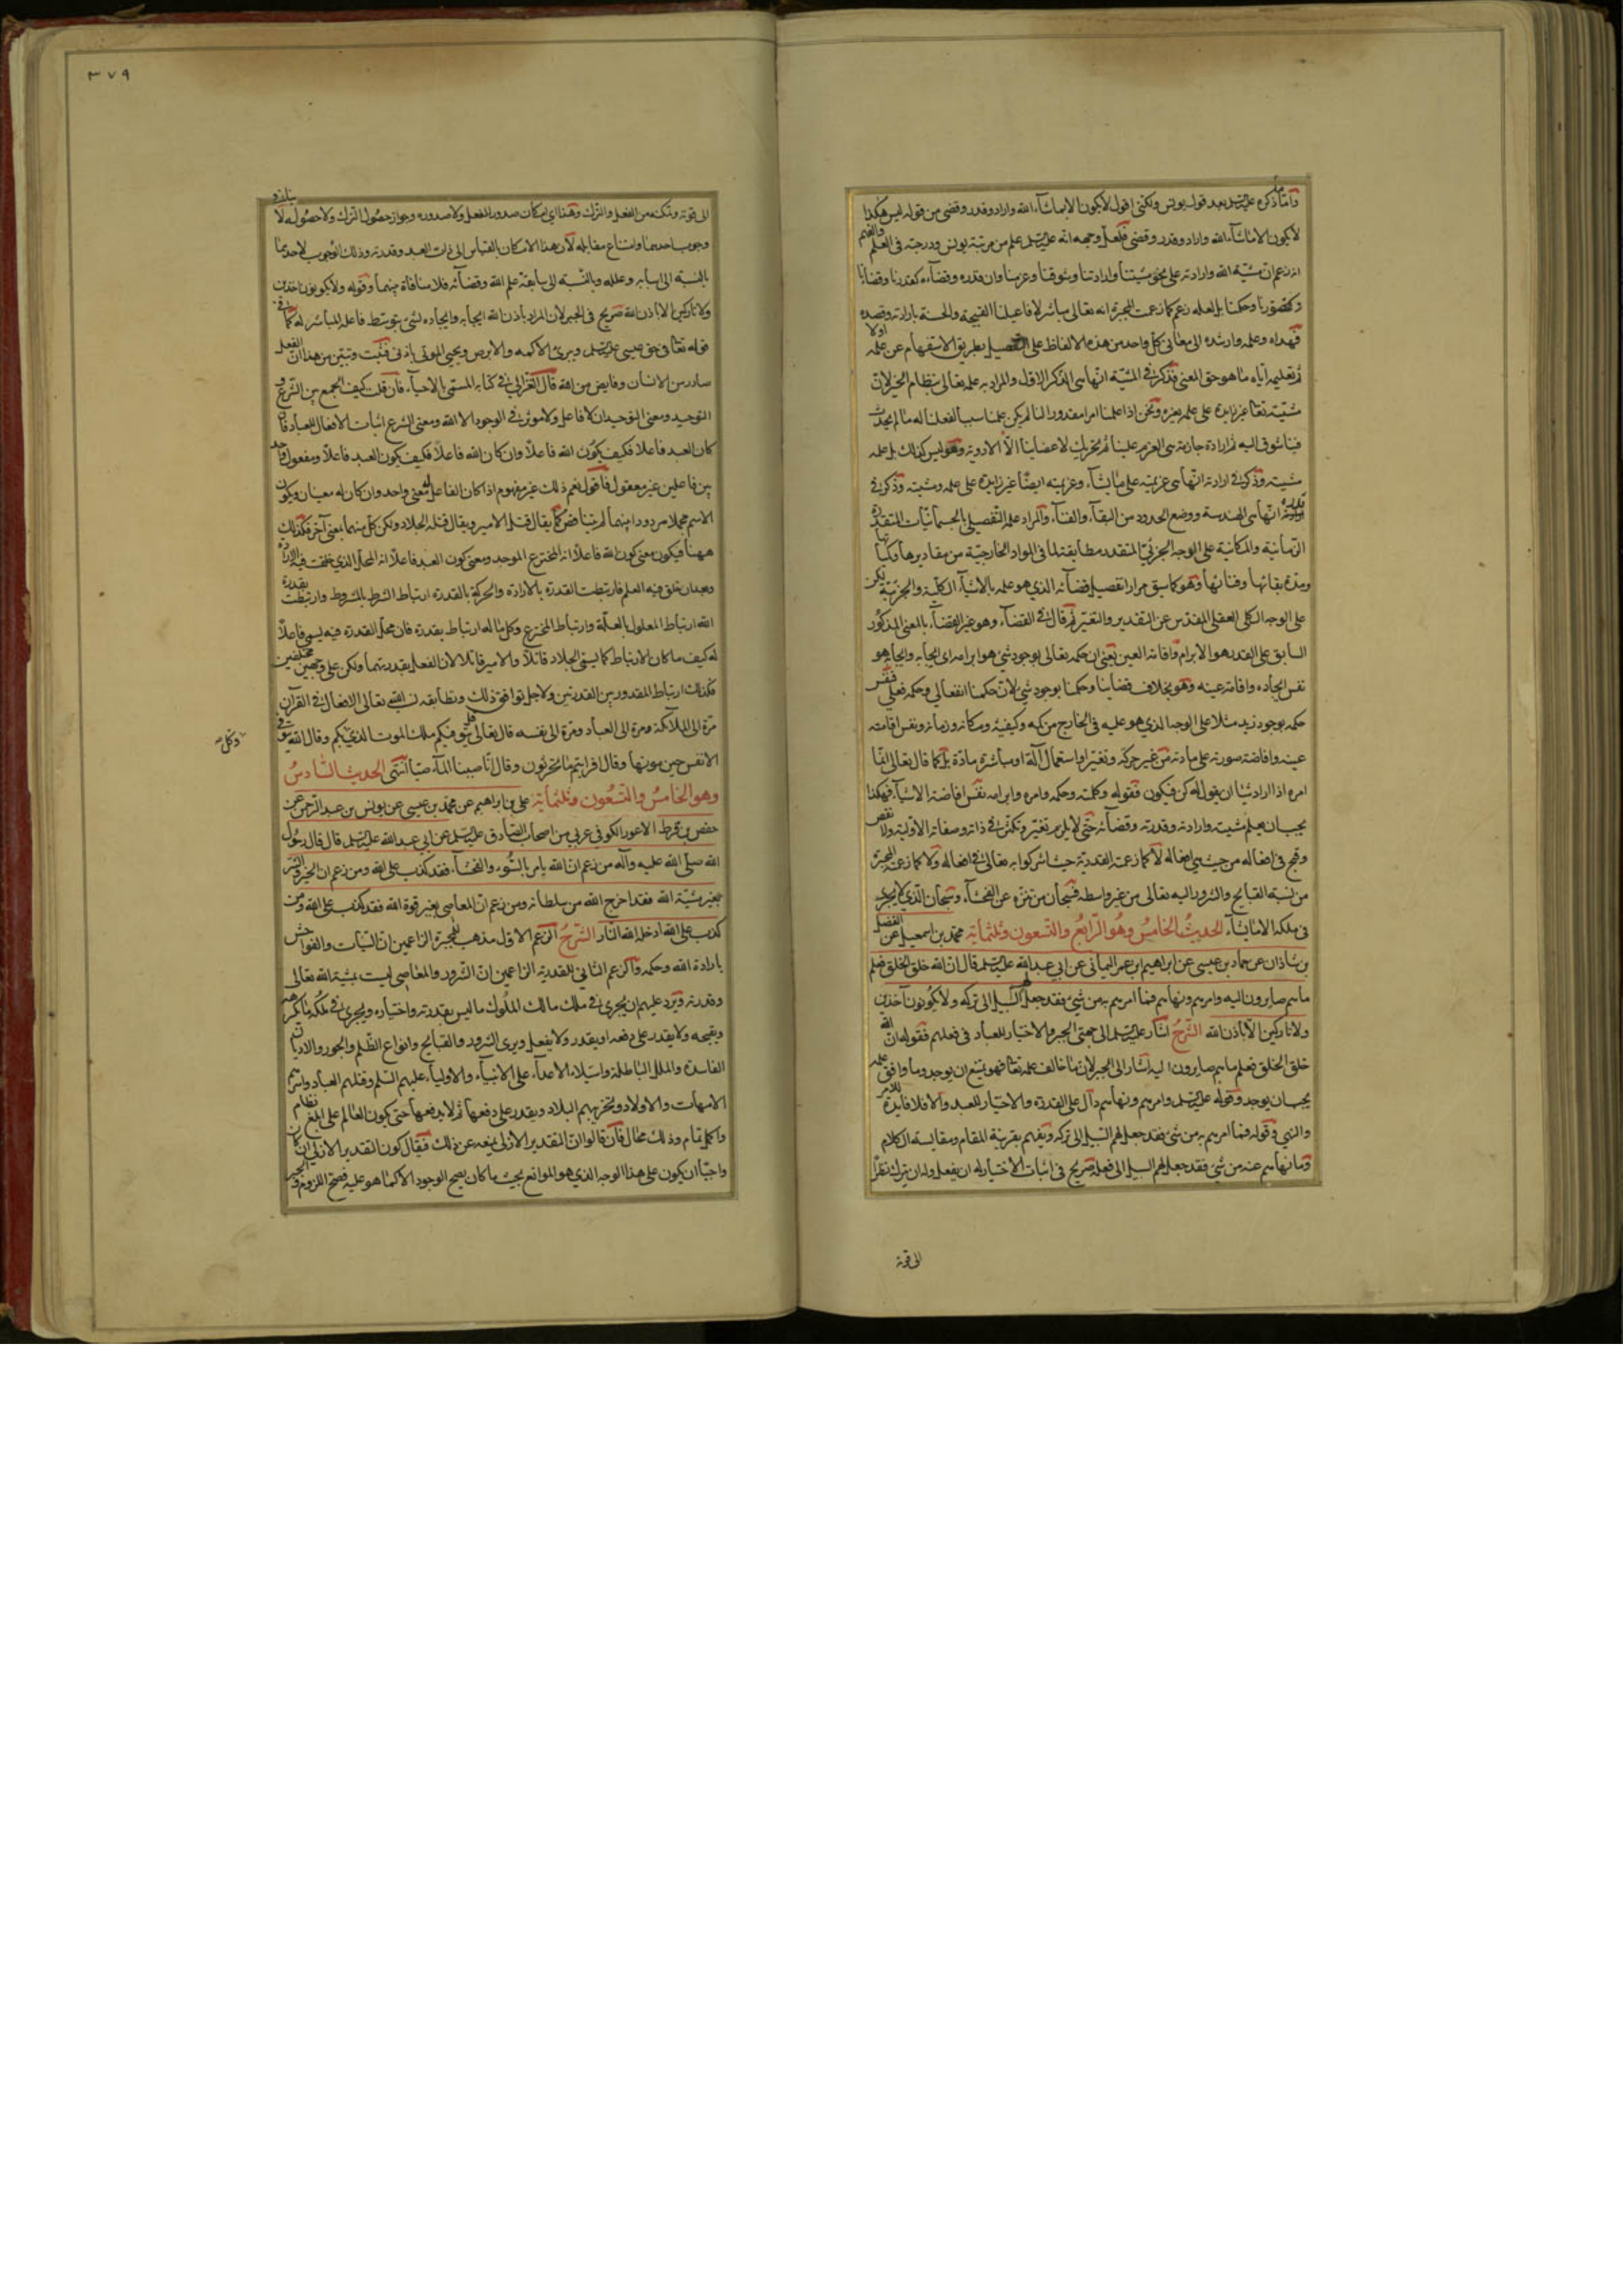 واما ما ذكره عليه السلم بعد قول يونس ولكنى اقول لا يكون الا بما شاء الله واراد وقدر وقضى من قوله ليس هكذا
لا يكون الا ما شاء الله واراد وقدر وقضى فلعل وجهه انه عليه السلم علم من مرتبة يونس ودرجته فى العلم والفهم
انه زعم ان مشية الله وارادته على نحو مشيتنا وارادتنا وشوقنا وعزمنا وان قدره وقضاءه كقدرنا وقضائنا
وكتصورنا وحكمنا بل لعله زعم كما زعمت المجبرة انه تعالى مباشر لافاعيلنا القبيحة والحسنة بارادته وقصده
فهداه وعلمه وارشده الى معانى كل واحد من هذه الالفاظ على التفصيل بطريق الاستفهام عن علمه اولا
ثم تعليمه اياه ما هو حق المعنى فذكر فى المشية انها هى الذكر الاول والمراد به علمه تعالى بنظام الخير لان
مشيته تعالى غير زايدة على علمه بغيره ونحن اذا علمنا امرا مقدورا لنا لم يكن علمنا سببا لفعلنا له ما لم يحدث
فينا شوق اليه ثم ارادة جازمة هى العزم علينا ثم تحريك لاعضائنا الا الادوية وهو ليس كذلك بل علمه
مشيته وذكر فى ارادته انها هى عزيمته على ما يشاء وعزيمته ايضا غير زايدة على علمه ومشيته وذكر فى
قدره انها هى الهندسة ووضع الحدود من البقاء والفناء والمراد علمه التفصيلى بالجسمانيات المتقدرة
الزمانية والمكانية على الوجه الجزئى المتقدر مطابقة لما فى المواد الخارجية من مقاديرها وكمياتها
ومدة بقائها وفنائها وهو كما سبق مرارا تفصيل قضائه الذى هو علمه بالاشياء الكلية والجزئية لكن
على الوجه الكلى العقلى المقدس عن التقدير والتغير ثم قال فى القضاء وهو غير القضاء بالمعنى المذكور
السابق على القدر هو الابرام واقامة العين يعنى ان حكمه تعالى بوجود شئ هو ابرامه اى ايجابه وايجابه هو
نفس ايجاده واقامة عينه وهو بخلاف قضاينا وحكمنا بوجود شئ لان حكمنا انفعالى وحكمه فعلى فنفس
حكمه بوجود زيد مثلا على الوجه الذى هو عليه فى الخارج من كمه وكيفيته ومكانه وزمانه ونفس اقامته
عينه وافاضته صورته على مادته من غير حركة وتغير او استعمال آلة او مباشرة مادة بل كما قال تعالى انما
امره اذا اراد شيئا ان يقول له كن فيكون فقوله وكلمته وحكمه وامره وابرامه نفس افاضة الاشياء فهكذا
يجب ان يعلم مشيته وارادته وقدرته وقضائه حتى لا يلزم تغير وتكثر فى ذاته وصفاته الاولية ولا نقص
وقبح فى افعاله من حيث هى افعاله لا كما زعمته القدرية حيث اشركوا به تعالى فى افعاله ولا كما زعمه المجبرة
من نسبة القبايح والشرور اليه تعالى من غير واسطة فسبحان من تنزه عن الفحشاء وسبحان الذى لا يجرى
فى ملكه الا ما يشاء الحديث الخامس وهو الرابع والتسعون وثلثماية محمد بن اسمعيل عن الفضل
بن شاذان عن حماد بن عيسى عن ابراهيم بن عمر اليمانى عن ابى عبد الله عليه السلم قال ان الله خلق الخلق فعلم
ما هم صايرون اليه وامرهم ونهاهم فما امرهم به من شئ فقد جعل لهم السبيل الى تركه ولا يكونون آخذين
ولا تاركين الا باذن الله الشرح اشار عليه السلم الى جهتى الجبر والاختيار للعباد فى فعلهم فقوله ان الله
خلق الخلق فعلم ما هم صايرون اليه اشار الى الجبر لان ما خالف علمه تعالى فهو يمتنع ان يوجد وما وافق علمه
يجب ان يوجد وقوله عليه السلم وامرهم ونهاهم دال على القدرة والاختيار للعبد والا فلا فايدة للامر
والنهى وقوله فما امرهم به من شئ فقد جعل لهم السبيل الى تركه ويفهم بقرينة المقام ومقايسة الكلام
وما نهاهم عنه من شئ فقد جعل لهم السبيل الى فعله صريح فى اثبات الاختيار له ان يفعل وله ان يترك نظرا
الى قوته
٣٧٩
الى قوته وتمكنه من الفعل والترك وهذا اى امكان صدور الفعل ولا صدوره وجواز حصول الترك ولا حصوله لا ينافى
وجوب احدهما وامتناع مقابله لان هذا الامكان بالقياس الى ذات العبد وقدرته وذلك الوجوب لاحدهما
بالنسبة الى اسبابه وعلله وبالنسبة الى سابقة علم الله وقضائه فلا منافاة بينهما وقوله ولا يكونون آخذين
ولا تاركين الا باذن الله صريح فى الجبر لان المراد باذن الله ايجابه وايجاده لشئ بتوسط فاعله المباشر له كما فى
قوله تعالى فى حق عيسى عليه السلم ويبرئ الاكمه والابرص ويحيى الموتى باذنى فثبت وتبين من هذا ان الفعل
صادر من الانسان وفايض من الله قال الغزالى فى كتابه المسمى بالاحياء فان قلت كيف الجمع بين الشرع و
التوحيد ومعنى التوحيد ان لا فاعل ولا مؤثر فى الوجود الا الله ومعنى الشرع اثبات الافعال للعباد فان
كان العبد فاعلا فكيف يكون الله فاعلا وان كان الله فاعلا فكيف يكون العبد فاعلا ومفعول واحد
بين فاعلين غير معقول فاقول نعم ذلك غير مفهوم اذا كان الفاعل لمعنى واحد وان كان له معنيان ويكون
الاسم مجملا مرددا بينهما لم يتناقض كما يقال قتل الامير ويقال قتله الجلاد ولكن كل منهما بمعنى آخر فكذلك
ههنا فيكون معنى كون الله فاعلا انه المخترع الموجد ومعنى كون العبد فاعلا انه المحل الذى خلقت فيه الارادة
وبعد ان خلق فيه العلم فارتبطت القدرة بالارادة والحركة بالقدرة ارتباط الشرط بالمشروط وارتبطت بقدرة
الله ارتباط المعلول بالعلة وارتباط المخترع وكل ما له ارتباط بقدرة فان محل القدرة فيه يسمى فاعلا
له كيف ما كان الارتباط كما يسمى الجلاد قاتلا والامير قاتلا لان الفعل بقدرتهما ولكن على وجهين مختلفين
فكذلك ارتباط المقدور بين القدرتين ولاجل توافق ذلك وتطابقه نسب الله تعالى الافعال فى القرآن
مرة الى الملائكة ومرة الى العباد ومرة الى نفسه قال تعالى قل يتوفيكم ملك الموت الذى بكم وقال الله يتوفى
وكل
الانفس حين موتها وقال افرايتم ما تحرثون وقال انا صببنا الماء صبا انتهى الحديث السادس
وهو الخامس والتسعون وثلثماية على بن ابراهيم عن محمد بن عيسى عن يونس بن عبد الرحمن عن
حفص بن قرط الاعور الكوفى عربى من اصحاب الصادق عليه السلم عن ابى عبد الله عليه السلم قال قال رسول
الله صلى الله عليه وآله من زعم ان الله يامر بالسوء والفحشاء فقد كذب على الله ومن زعم ان الخير والشر
بغير مشية الله فقد اخرج الله من سلطانه ومن زعم ان المعاصى بغير قوة الله فقد كذب على الله ومن
كذب على الله ادخله الله النار الشرح الزعم الاول مذهب المجبرة الزاعمين ان السيآت والفواحش
بارادة الله وحكمه والزعم الثانى للقدرية الزاعمين ان الشرور والمعاصى ليست بمشية الله تعالى
وقدرته ويرد عليهم ان يجرى فى ملك مالك الملوك ما ليس بقدرته واختياره ويجرى فى ملكه ما يكرهه
ويقبحه ولا يقدر على دفعه او يقدر ولا يفعل ويرى الشرور والقبايح وانواع الظلم والجور والاديان
الفاسدة والملل الباطلة واستيلاء الاعداء على الانبياء والاولياء عليهم السلم وقتلهم العباد واسرهم
الامهات والاولاد وتخريبهم البلاد ويقدر على دفعها ثم لا يدفعها حتى يكون العالم على ابلغ نظام
واكمل تمام وذلك محال فان قالوا ان التقدير الازلى يمنعه عن ذلك فيقال كون التقدير الازلى ان كان
واجبا ان يكون على هذا الوجه الذى هو الواقع بحيث ما كان يصح الوجود الا كما هو عليه فصح اللزوم والجبر